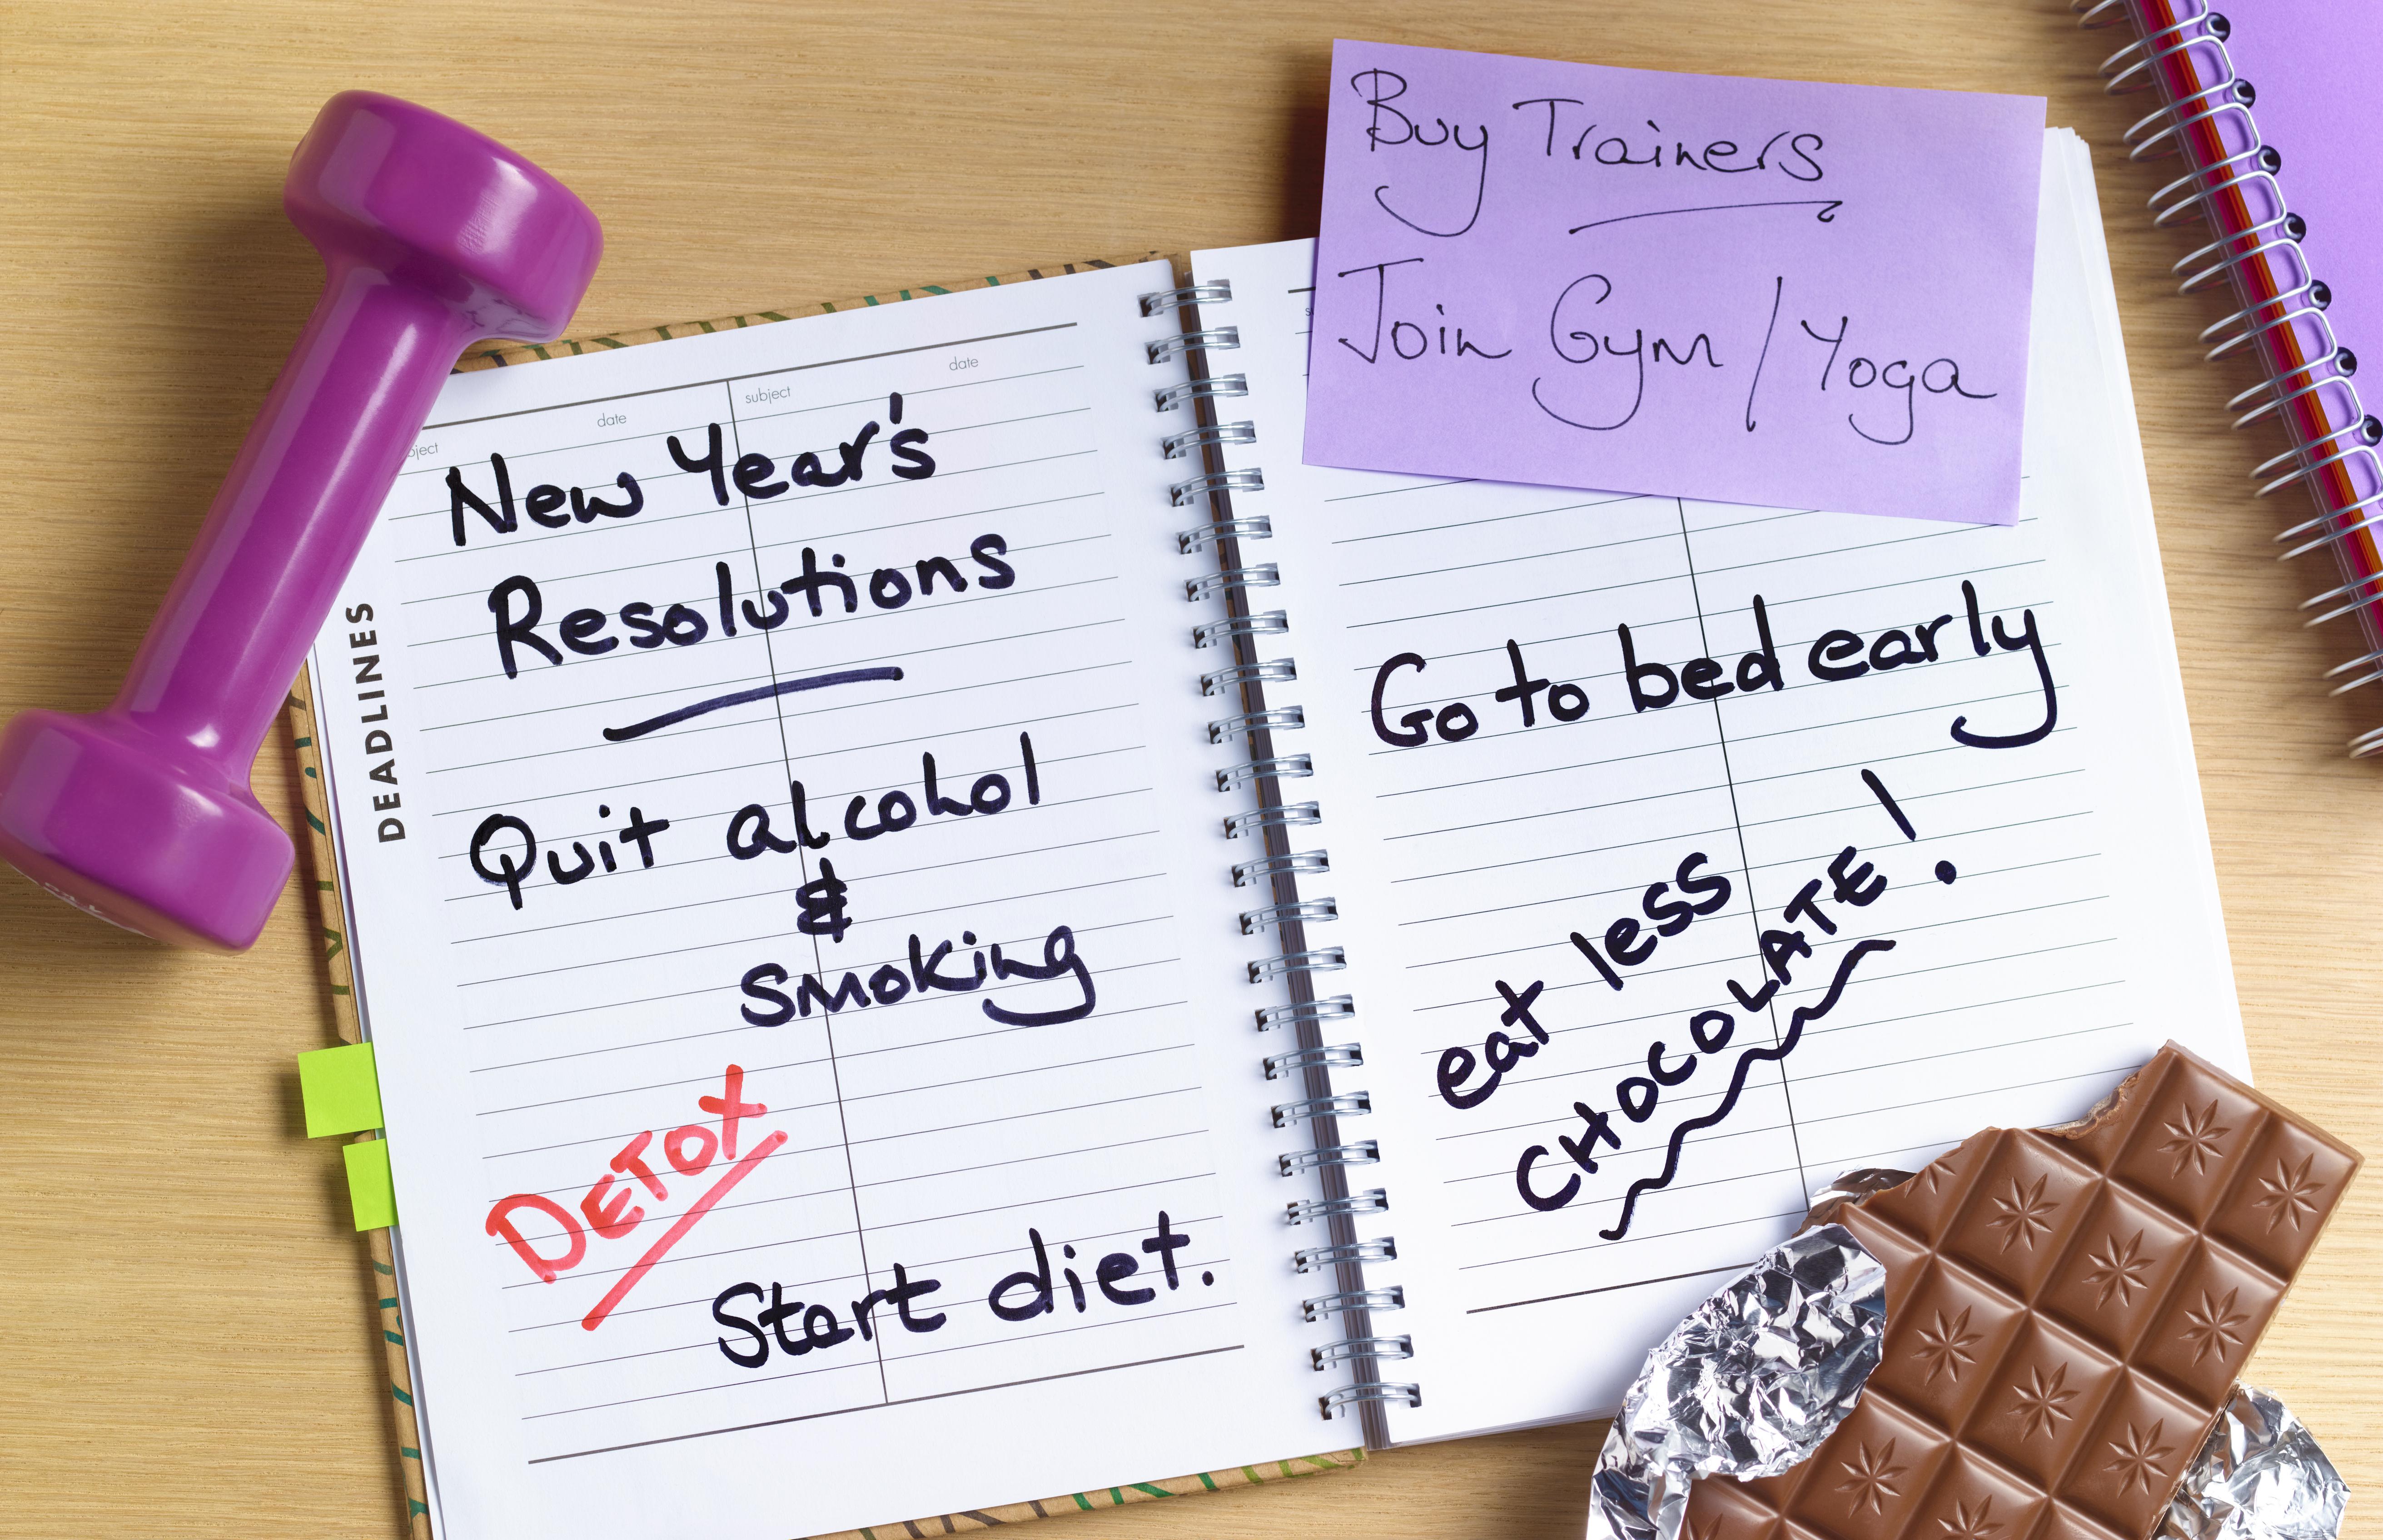 Buy Trainers
Join Gym / Yoga
date
subject
date
New Year's
Resolutions
DEADLINES
Quit alcohol
&
smoking
DETOX
Start diet.
Go to bed early
eat less
CHOCOLATE!